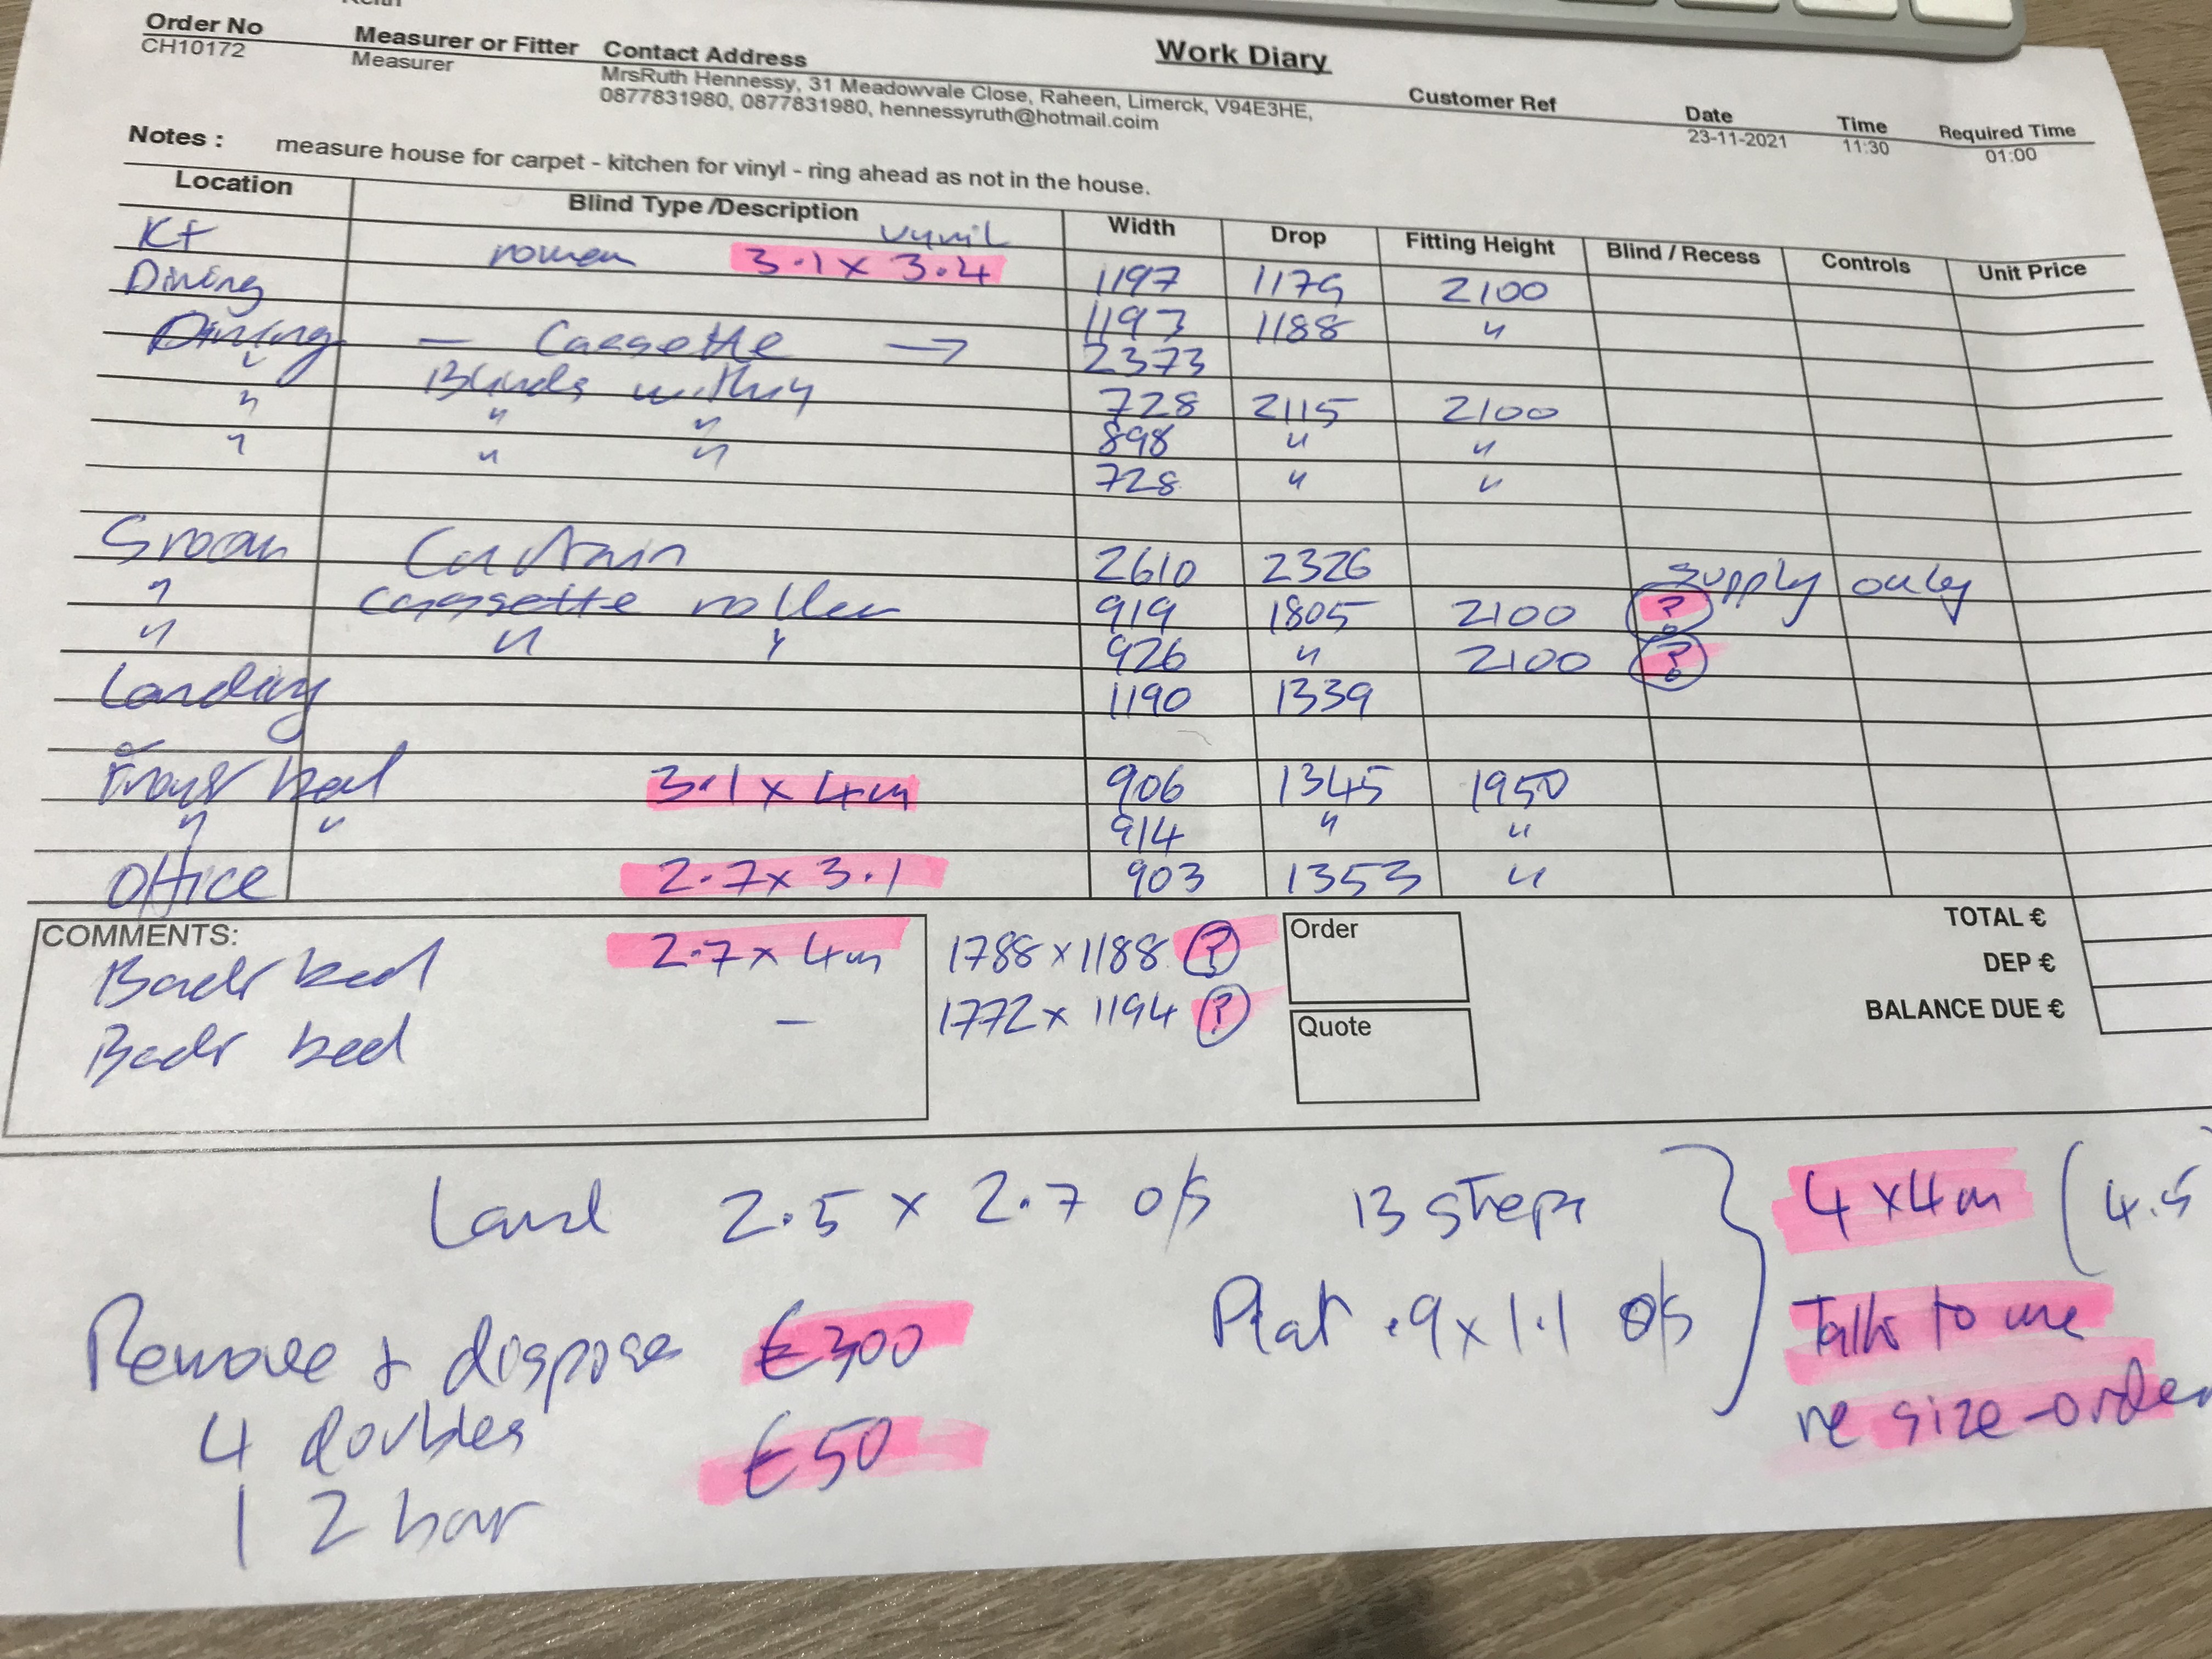 Order No Measurer or Fitter Contact Address Work Diary Customer Ref Date Time Required Time
CH10172 Measurer MrsRuth Hennessy, 31 Meadowvale Close, Raheen, Limerck, V94E3HE, 23-11-2021 11:30 01:00
0877831980, 0877831980, hennessyruth@hotmail.coim
Notes : measure house for carpet - kitchen for vinyl - ring ahead as not in the house.
Location Blind Type /Description Width Drop Fitting Height Blind / Recess Controls Unit Price
vynil
Kt roman 3.1 x 3.4 1197 1179 2100
Dining 1193 1188 "
Dining - Cassette → 2373
" Blinds 728 2115 2100
" " " 898 " "
" " " 728 " "
Sroom Curtain 2610 2326 supply only
" cassette roller 919 1805 2100 ?
" " " 926 " 2100 ?
Landing 1190 1339
Front bed 3.1 x 4m 906 1345 1950
" " 914 " "
Office 2.7 x 3.1 903 1353 "
COMMENTS: Order TOTAL €
Back bed 2.7 x 4m 1788 x 1188 ? DEP €
Back bed - 1772 x 1194 ? Quote BALANCE DUE €
Land 2.5 x 2.7 o/s 13 steps 4 x 4m (4.5
Plat .9 x 1.1 o/s Talk to me
Remove + dispose €300 re size - order
4 doubles €50
1 2 bar